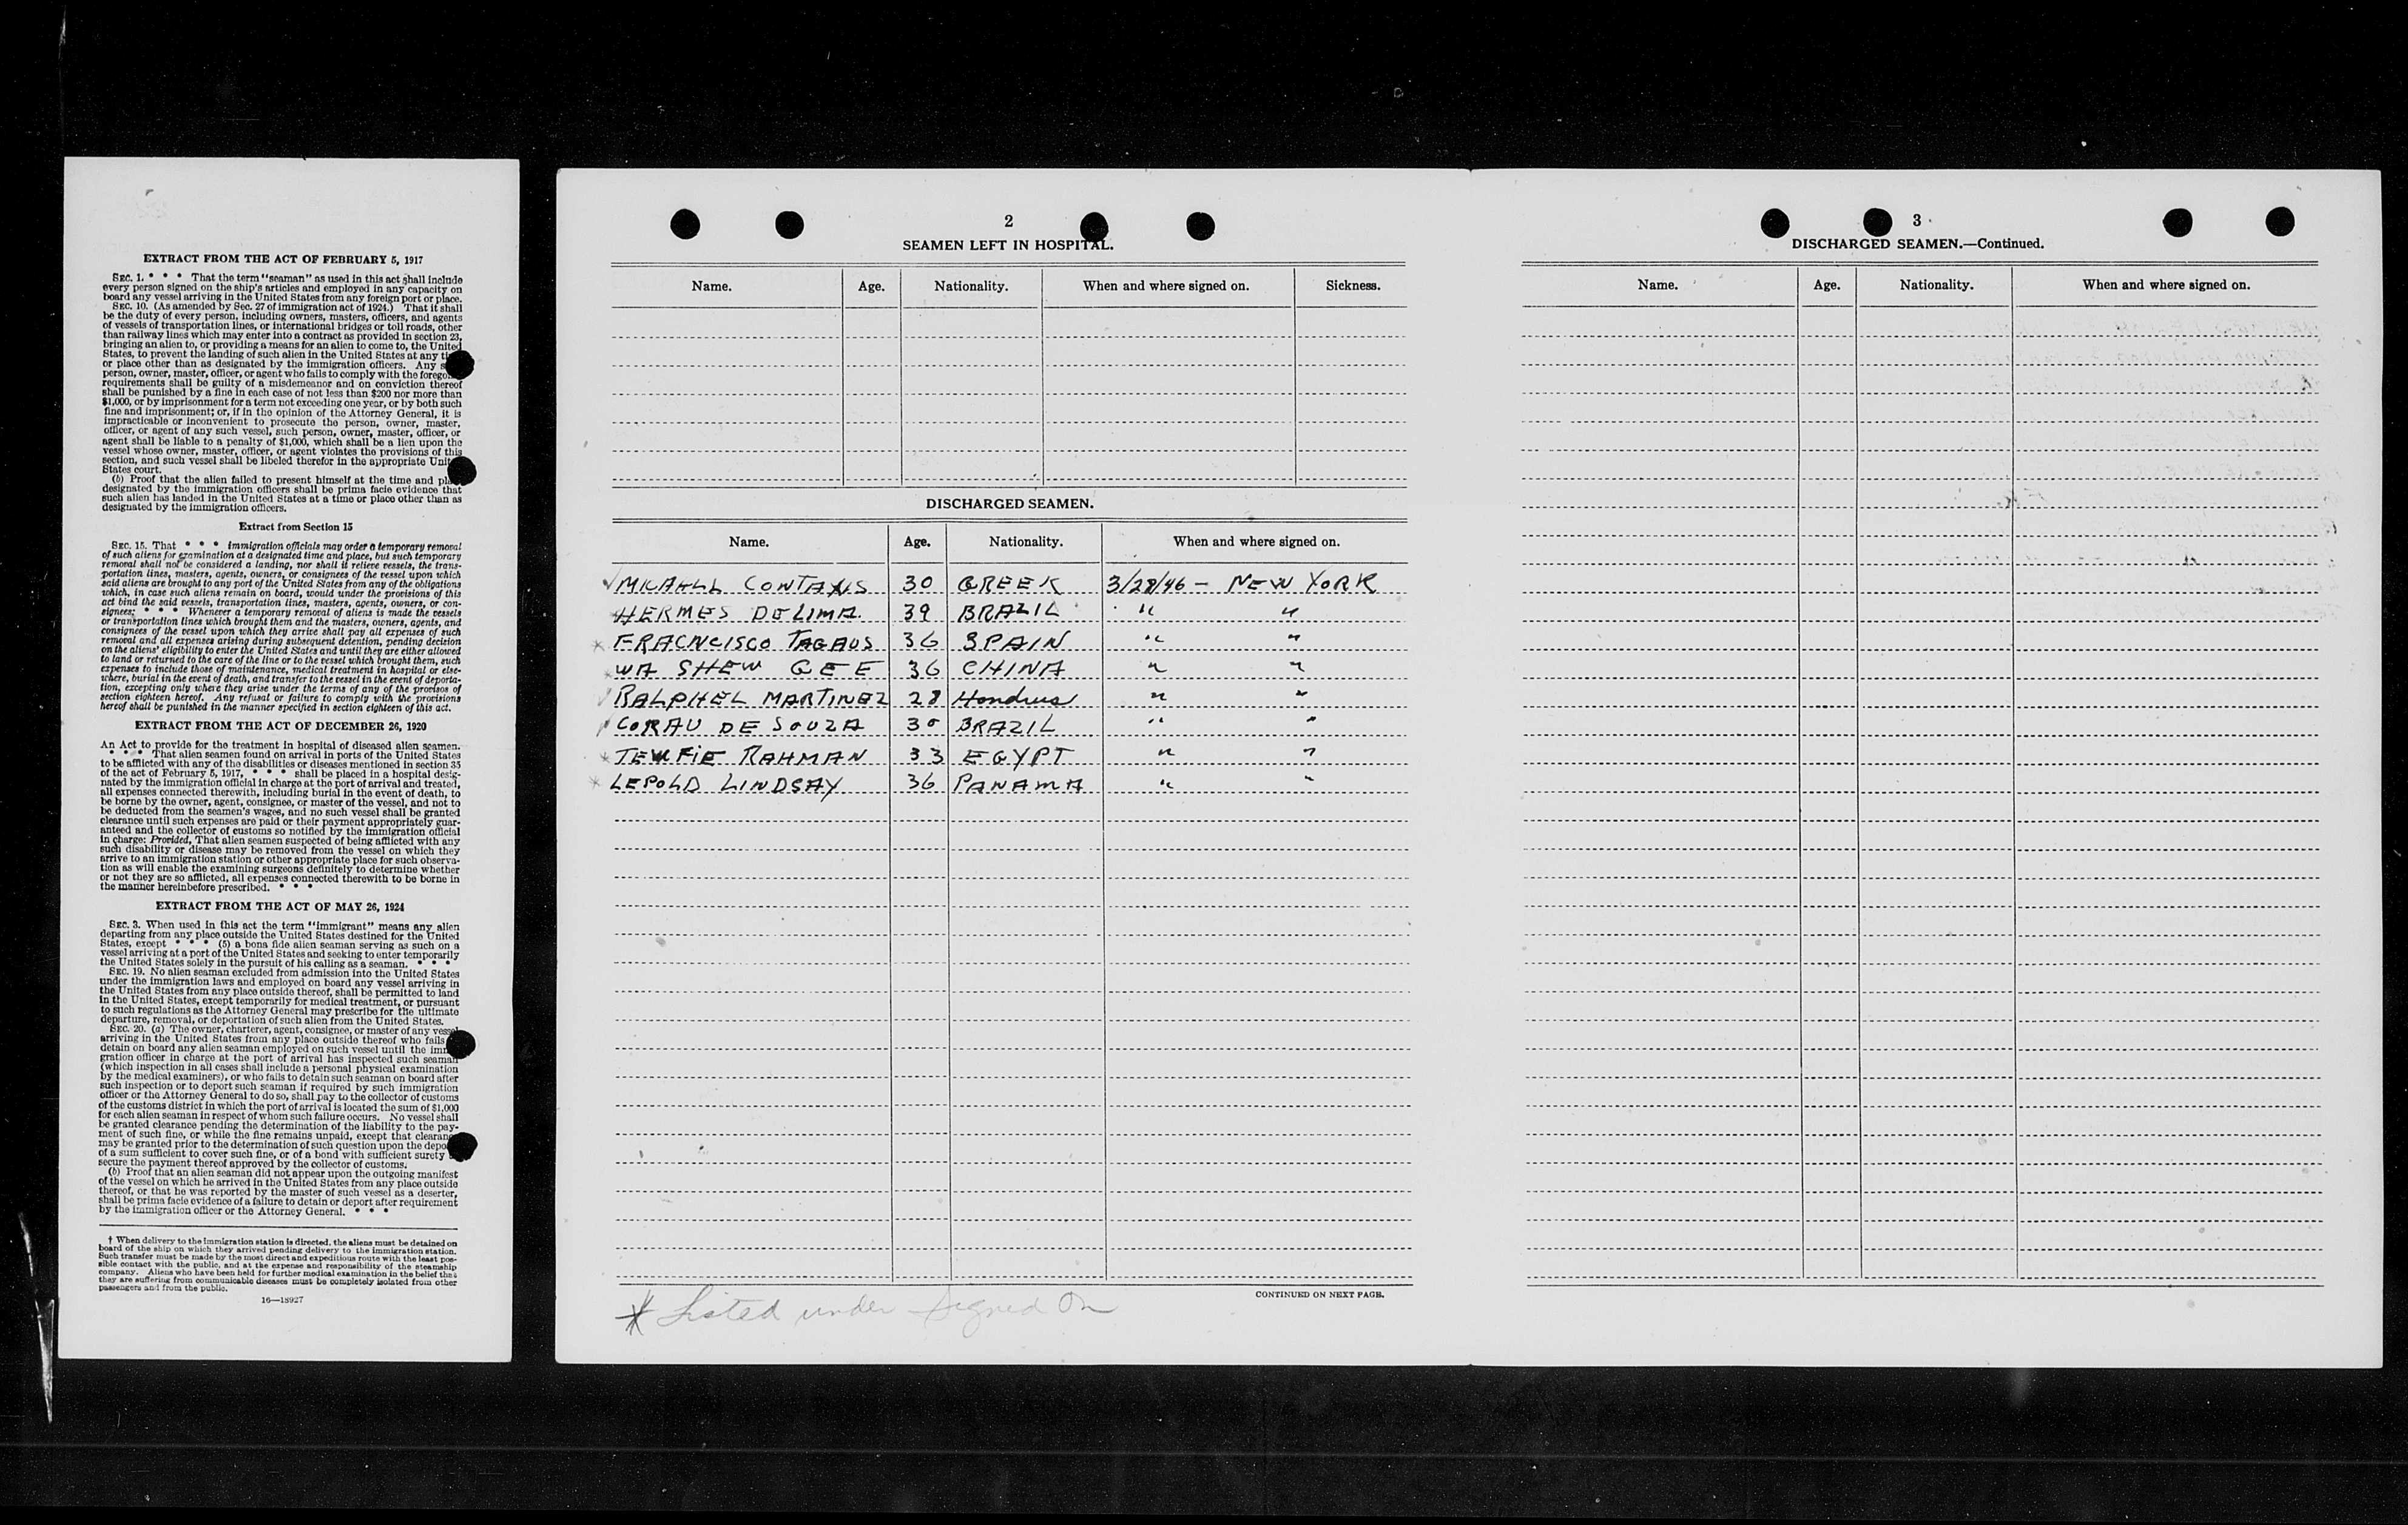 EXTRACT FROM THE ACT OF FEBRUARY 5, 1917
SEC. 1. * * * That the term "seaman" as used in this act shall include
every person signed on the ship's articles and employed in any capacity on
board any vessel arriving in the United States from any foreign port or place.
SEC. 10. (As amended by Sec. 27 of immigration act of 1924.) That it shall
be the duty of every person, including owners, masters, officers, and agents
of vessels of transportation lines, or international bridges or toll roads, other
than railway lines which may enter into a contract as provided in section 23,
bringing an alien to, or providing a means for an alien to come to, the United
States, to prevent the landing of such alien in the United States at any
or place other than as designated by the immigration officers. Any
person, owner, master, officer, or agent who fails to comply with the
requirements shall be guilty of a misdemeanor and on conviction thereof
shall be punished by a fine in each case of not less than $200 nor more than
$1,000, or by imprisonment for a term not exceeding one year, or by both such
fine and imprisonment; or, if in the opinion of the Attorney General, it is
impracticable or inconvenient to prosecute the person, owner, master,
officer, or agent of any such vessel, such person, owner, master, officer, or
agent shall be liable to a penalty of $1,000, which shall be a lien upon the
vessel whose owner, master, officer, or agent violates the provisions of this
section, and such vessel shall be libeled therefor in the appropriate
States court.
(b) Proof that the alien failed to present himself at the time and
designated by the immigration officers shall be prima facie evidence that
such alien has landed in the United States at a time or place other than as
designated by the immigration officers.
Extract from Section 15
SEC. 15. That * * * immigration officials may order a temporary removal
of such aliens for examination at a designated time and place, but such temporary
removal shall not be considered a landing, nor shall it relieve vessels, the trans-
portation lines, masters, agents, owners, or consignees of the vessel upon which
said aliens are brought to any port of the United States from any of the obligations
which, in case such aliens remain on board, would under the provisions of this
act bind the said vessels, transportation lines, masters, agents, owners, or con-
signees; * * * Whenever a temporary removal of aliens is made the vessels
or transportation lines which brought them and the masters, owners, agents, and
consignees of the vessel upon which they arrive shall pay all expenses of such
removal and all expenses arising during subsequent detention, pending decision
on the aliens' eligibility to enter the United States and until they are either allowed
to land or returned to the care of the line or to the vessel which brought them, such
expenses to include those of maintenance, medical treatment in hospital or else-
where, burial in the event of death, and transfer to the vessel in the event of deporta-
tion, excepting only where they arise under the terms of any of the provisos of
section eighteen hereof. Any refusal or failure to comply with the provisions
hereof shall be punished in the manner specified in section eighteen of this act.
EXTRACT FROM THE ACT OF DECEMBER 26, 1920
An Act to provide for the treatment in hospital of diseased alien seamen.
* * * That alien seamen found on arrival in ports of the United States
to be afflicted with any of the disabilities or diseases mentioned in section 35
of the act of February 5, 1917, * * * shall be placed in a hospital desig-
nated by the immigration official in charge at the port of arrival and treated,
all expenses connected therewith, including burial in the event of death, to
be borne by the owner, agent, consignee, or master of the vessel, and not to
be deducted from the seamen's wages, and no such vessel shall be granted
clearance until such expenses are paid or their payment appropriately guar-
anteed and the collector of customs so notified by the immigration official
in charge: Provided, That alien seamen suspected of being afflicted with any
such disability or disease may be removed from the vessel on which they
arrive to an immigration station or other appropriate place for such observa-
tion as will enable the examining surgeons definitely to determine whether
or not they are so afflicted, all expenses connected therewith to be borne in
the manner hereinbefore prescribed. * * *
EXTRACT FROM THE ACT OF MAY 26, 1924
SEC. 3. When used in this act the term "immigrant" means any alien
departing from any place outside the United States destined for the United
States, except * * * (5) a bona fide alien seaman serving as such on a
vessel arriving at a port of the United States and seeking to enter temporarily
the United States solely in the pursuit of his calling as a seaman. * * *
SEC. 19. No alien seaman excluded from admission into the United States
under the immigration laws and employed on board any vessel arriving in
the United States from any place outside thereof, shall be permitted to land
in the United States, except temporarily for medical treatment, or pursuant
to such regulations as the Attorney General may prescribe for the ultimate
departure, removal, or deportation of such alien from the United States.
SEC. 20. (a) The owner, charterer, agent, consignee, or master of any vessel
arriving in the United States from any place outside thereof who fails
detain on board any alien seaman employed on such vessel until the
gration officer in charge at the port of arrival has inspected such seaman
(which inspection in all cases shall include a personal physical examination
by the medical examiners), or who fails to detain such seaman on board after
such inspection or to deport such seaman if required by such immigration
officer or the Attorney General to do so, shall pay to the collector of customs
of the customs district in which the port of arrival is located the sum of $1,000
for each alien seaman in respect of whom such failure occurs. No vessel shall
be granted clearance pending the determination of the liability to the pay-
ment of such fine, or while the fine remains unpaid, except that clearance
may be granted prior to the determination of such question upon the
of a sum sufficient to cover such fine, or of a bond with sufficient surety
secure the payment thereof approved by the collector of customs.
(b) Proof that an alien seaman did not appear upon the outgoing manifest
of the vessel on which he arrived in the United States from any place outside
thereof, or that he was reported by the master of such vessel as a deserter,
shall be prima facie evidence of a failure to detain or deport after requirement
by the immigration officer or the Attorney General. * * *
† When delivery to the immigration station is directed, the aliens must be detained on
board of the ship on which they arrived pending delivery to the immigration station.
Such transfer must be made by the most direct and expeditious route with the least pos-
sible contact with the public, and at the expense and responsibility of the steamship
company. Aliens who have been held for further medical examination in the belief that
they are suffering from communicable diseases must be completely isolated from other
passengers and from the public.
16—18927
2
SEAMEN LEFT IN HOSPITAL.
Name. Age. Nationality. When and where signed on. Sickness.
DISCHARGED SEAMEN.
Name. Age. Nationality. When and where signed on.
✓ MICAELL CONTAXIS 30 GREEK 3/28/46 - NEW YORK
HERMES DELIMA. 39 BRAZIL " "
* FRACNCISCO TAGAOS 36 SPAIN " "
* WA SHEW GEE 36 CHINA " "
✓ RALPHEL MARTINEZ 28 Hondrus " "
✓ CORAU DE SOUZA 30 BRAZIL " "
* TEWFIE RAHMAN 33 EGYPT " "
* LEPOLD LINDSAY 36 PANAMA " "
CONTINUED ON NEXT PAGE.
* Listed under Signed On
3
DISCHARGED SEAMEN.—Continued.
Name. Age. Nationality. When and where signed on.